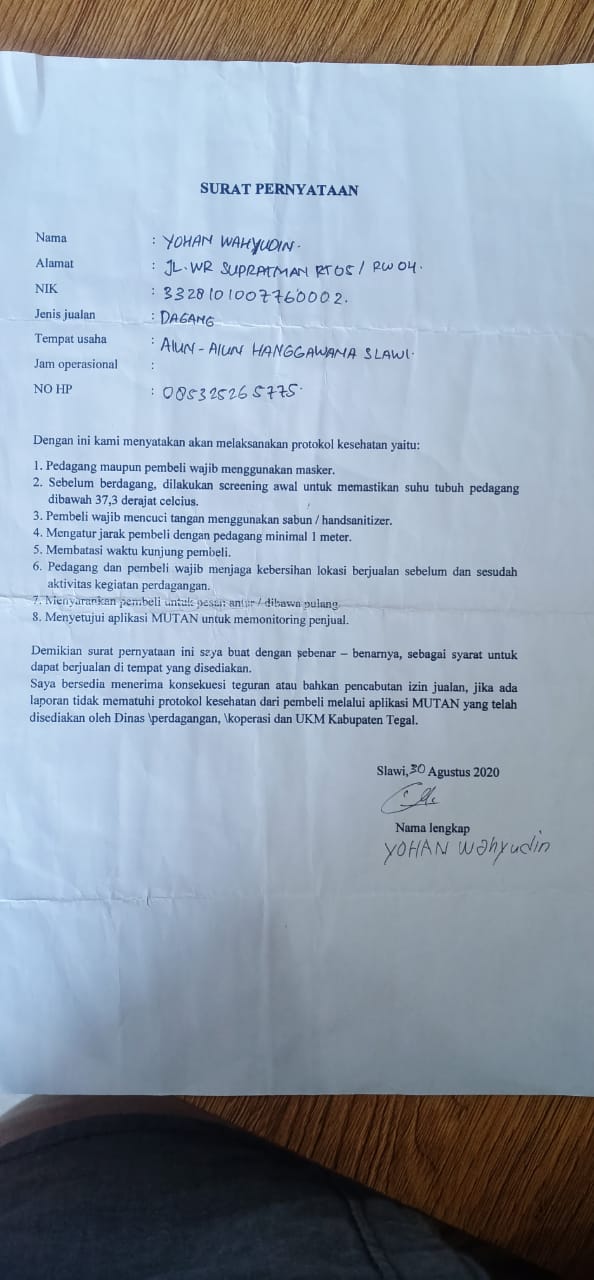 SURAT PERNYATAAN
Nama : YOHAN WAHYUDIN.
Alamat : JL. WR SUPRATMAN RT05 / RW 04.
NIK : 3328101007760002.
Jenis jualan : DAGANG
Tempat usaha : AlUN - AlUN HANGGAWANA SLAWI.
Jam operasional :
NO HP : 085325265775.
Dengan ini kami menyatakan akan melaksanakan protokol kesehatan yaitu:
1. Pedagang maupun pembeli wajib menggunakan masker.
2. Sebelum berdagang, dilakukan screening awal untuk memastikan suhu tubuh pedagang
dibawah 37,3 derajat celcius.
3. Pembeli wajib mencuci tangan menggunakan sabun / handsanitizer.
4. Mengatur jarak pembeli dengan pedagang minimal 1 meter.
5. Membatasi waktu kunjung pembeli.
6. Pedagang dan pembeli wajib menjaga kebersihan lokasi berjualan sebelum dan sesudah
aktivitas kegiatan perdagangan.
7. Menyarankan pembeli untuk pesan antar / dibawa pulang.
8. Menyetujui aplikasi MUTAN untuk memonitoring penjual.
Demikian surat pernyataan ini saya buat dengan sebenar – benarnya, sebagai syarat untuk
dapat berjualan di tempat yang disediakan.
Saya bersedia menerima konsekuesi teguran atau bahkan pencabutan izin jualan, jika ada
laporan tidak mematuhi protokol kesehatan dari pembeli melalui aplikasi MUTAN yang telah
disediakan oleh Dinas \perdagangan, \koperasi dan UKM Kabupaten Tegal.
Slawi, 30 Agustus 2020
Nama lengkap
YOHAN Wahyudin